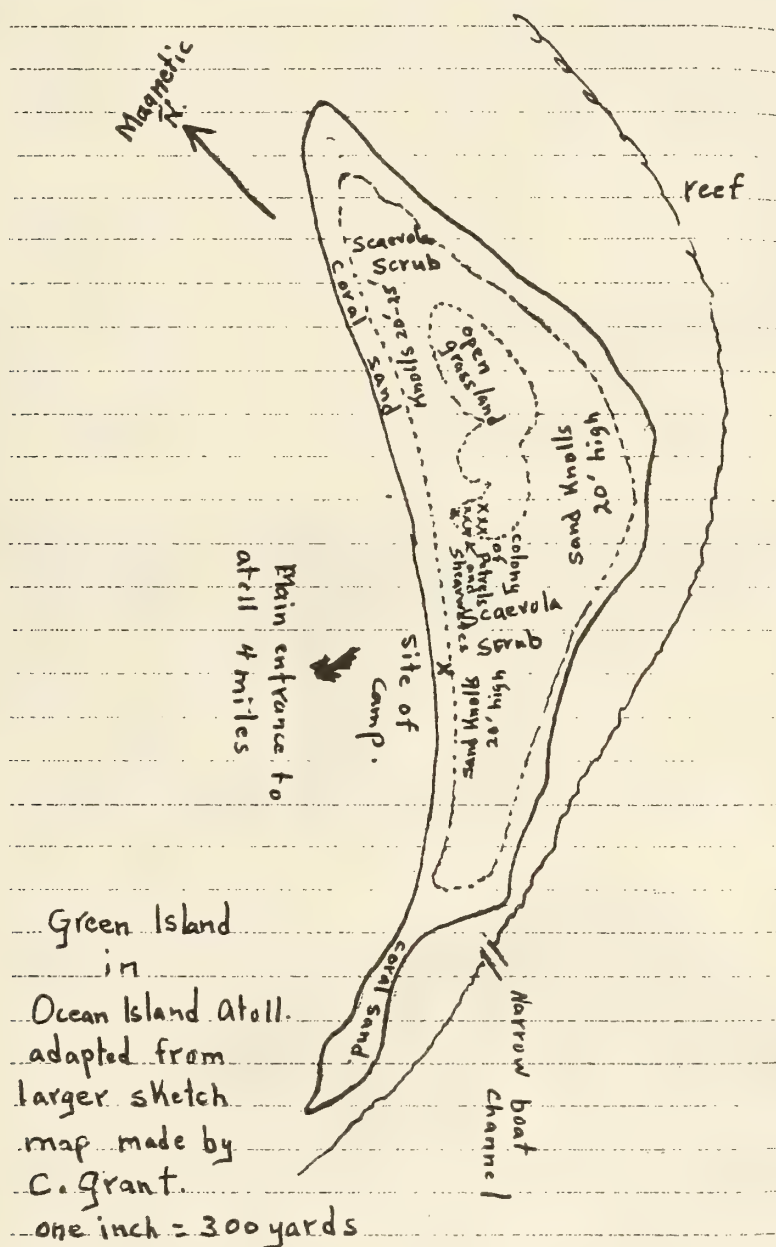 Magnetic
N.
reef
Scaevola
Scrub
coral sand
Knolls 20'-25'
open
grassland
20' high
sand Knolls
colony
of
Petrels
and
Shearwaters
xxx
Scaevola
Scrub
20' high
sand Knolls
X
site of
camp.
Main entrance to
atell 4 miles
coral sand
Narrow boat
channel
Green Island
in
Ocean Island atoll.
adapted from
larger sketch
map made by
C. Grant.
one inch = 300 yards